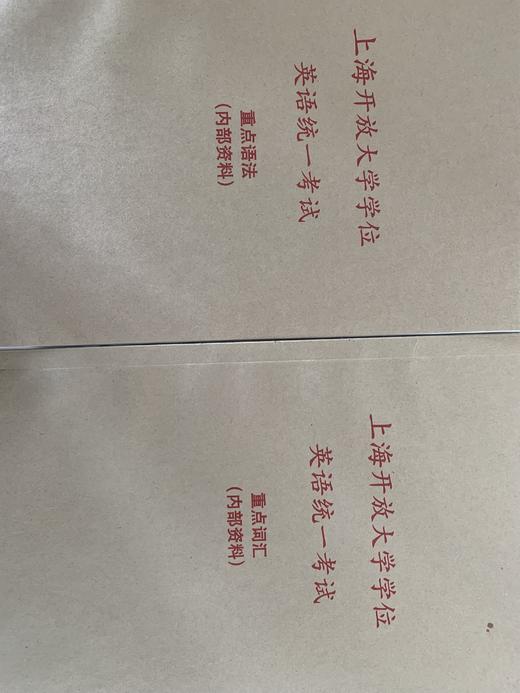 上海开放大学学位
英语统一考试
重点语法
(内部资料)
上海开放大学学位
英语统一考试
重点词汇
(内部资料)